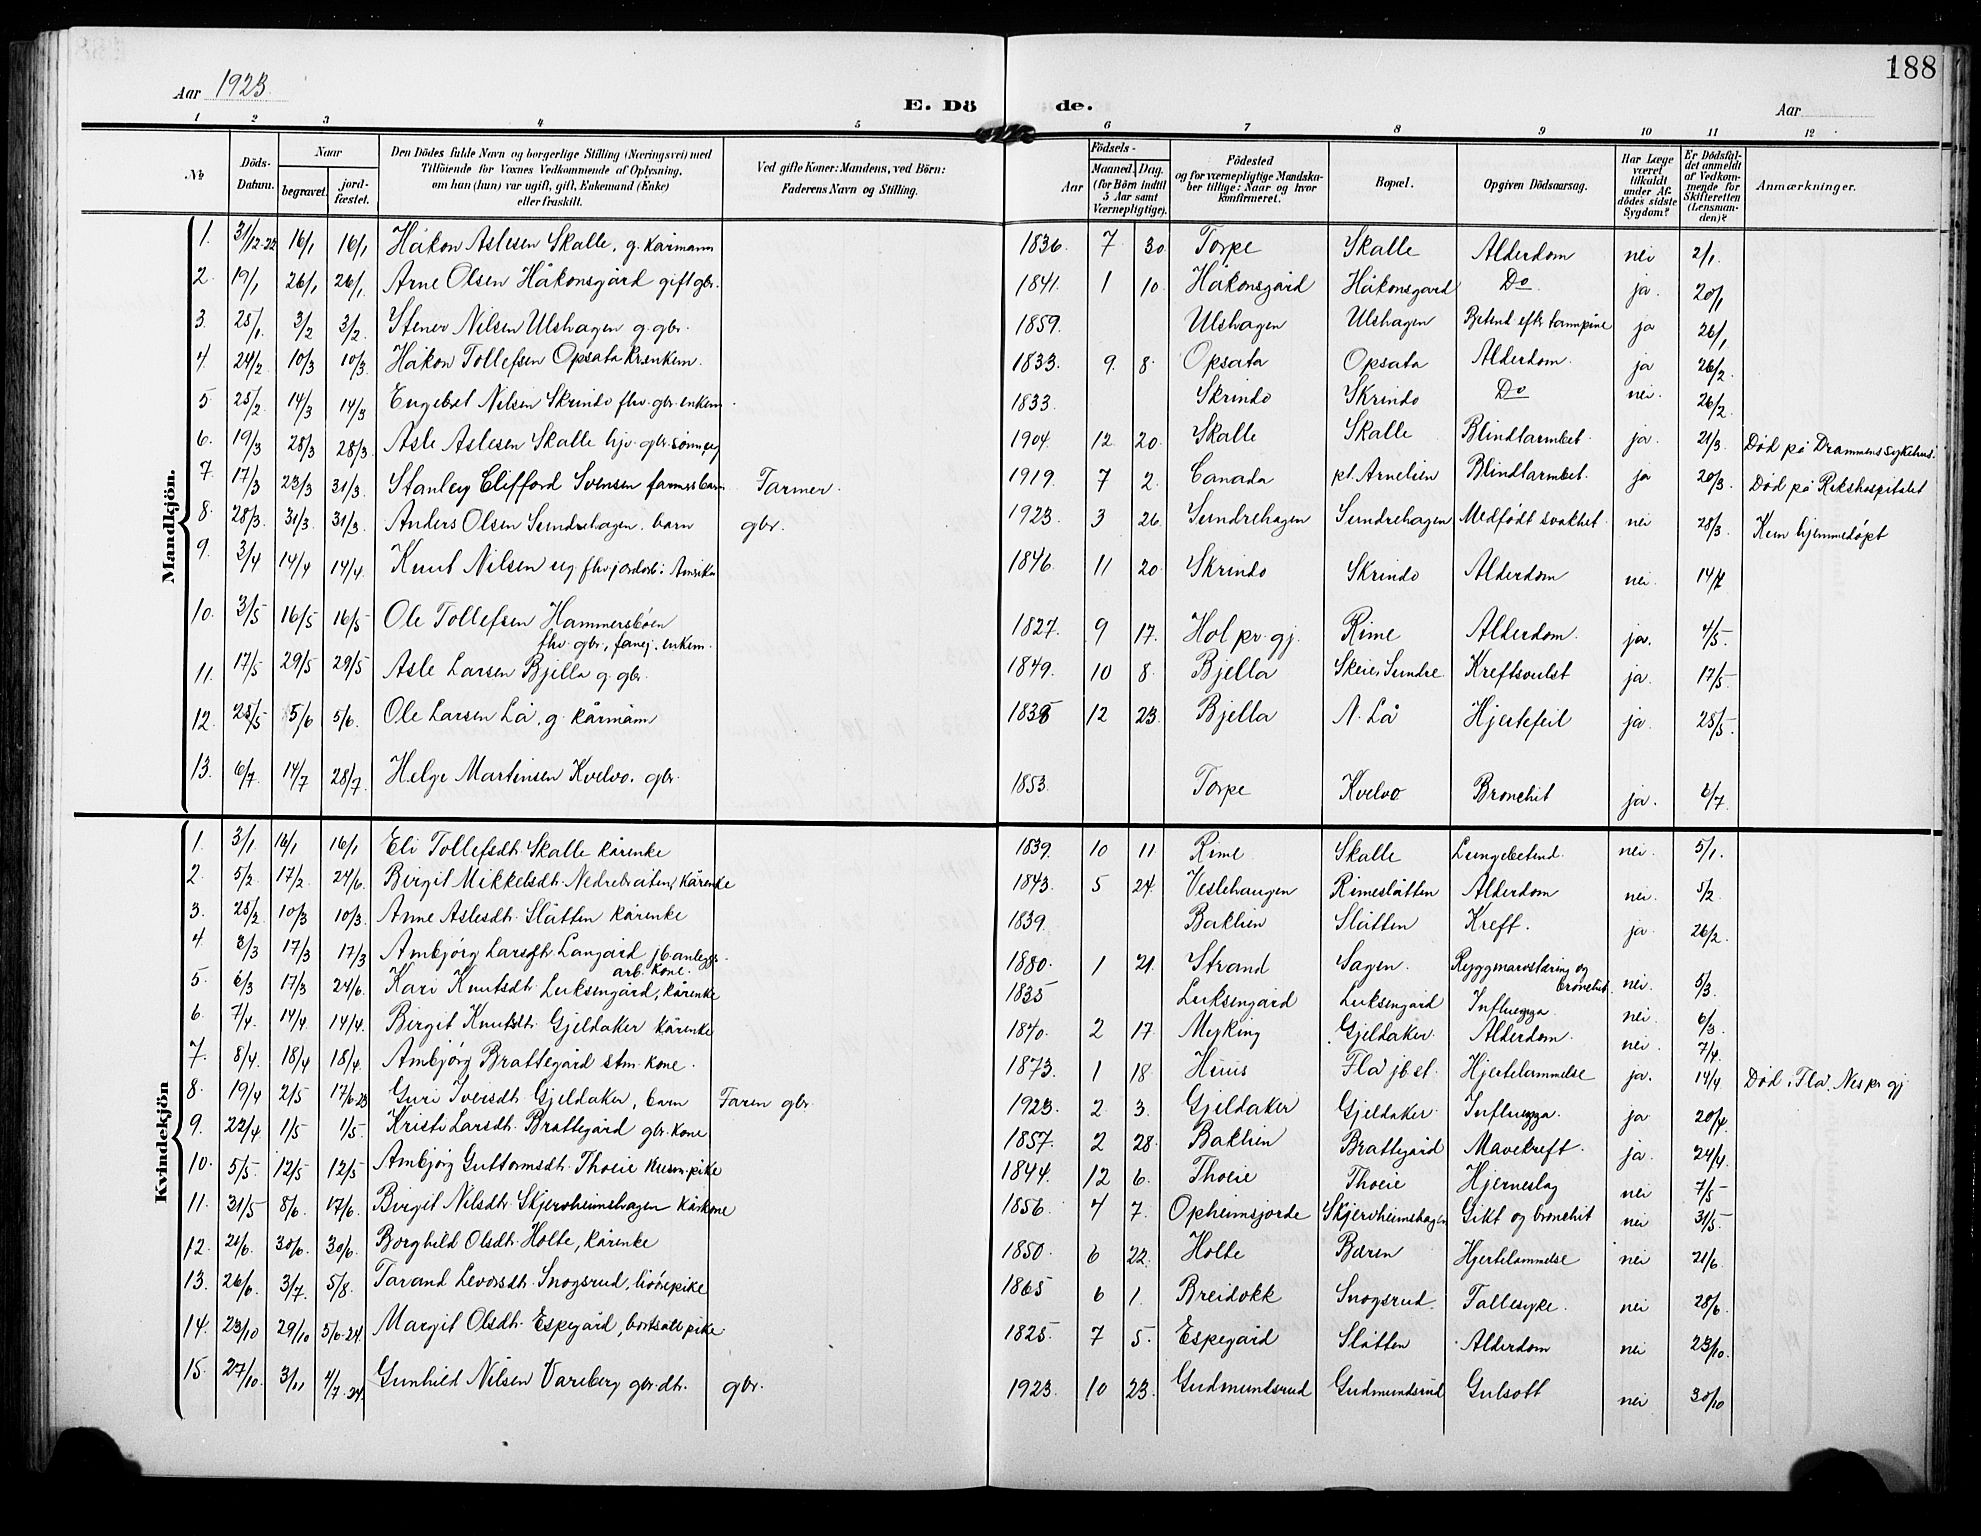 188
Aar 1923.
E. Dö de.
Aar
1 2 3 4 5 6 7 8 9 10 11 12
No.
Döds-Datum.
Naar
begravet.
jordfæstet.
Den Dödes fulde Navn og borgerlige Stilling (Næringsvei) med
Tilföiende for Voxnes Vedkommende af Oplysning,
om han (hun) var ugift, gift, Enkemand (Enke)
eller fraskilt.
Ved gifte Koner: Mandens, ved Börn:
Faderens Navn og Stilling.
Födsels-
Aar
Maaned. Dag.
(for Börn indtil
5 Aar samt
Værnepligtige).
Födested
og for værnepligtige Mandskaber tillige: Naar og hvor
konfirmeret.
Bopæl.
Opgiven Dödsaarsag.
Har Læge
været
tilkaldt
under Afdödes sidste
Sygdom?
Er Dödsfaldet anmeldt
af Vedkommende for
Skifteretten
(Lensmanden)?
Anmærkninger.
Mandkjön.
1. 31/12-22 16/1 16/1 Håkon Aslesen Skalle, g. kårmann 1836. 7 30 Torpe Skalle Alderdom nei 2/1.
2. 19/1 26/1 26/1. Arne Olsen Håkonsgård gift gbr. 1841. 1 10. Håkonsgård Håkonsgard Do. ja. 20/1
3. 25/1. 3/2 3/2. Stener Nilsen Ulshagen g. gbr. 1859. Ulshagen Ulshagen ja 26/1
4. 24/2 10/3 10/3. Håkon Tollefsen Opsata 1833. 9. 8. Opsata Opsata Alderdom. ja 26/2.
5 25/2. 14/3 14/3 Engebret Nilsen Skrindo fhv. gbr. enkem. 1833. Skrindo Skrindo Do nei. 26/2.
6. 19/3 28/3 28/3. Asle Aslesen Skalle hjv. gbr. sønn, ug 1904. 12 20. Skalle Skalle Blindtarmbet. ja. 21/3 Død på Drammens sykehus.
7. 17/3 23/3 31/3. Stanley Clifford Svensen farmersbarn Farmer. 1919. 7 2. Canada pl. Arnelien Blindtarmbet. ja 20/3. Død på Rikshospitalet
8 28/3. 31/3. 31/3. Anders Olsen Sundrehagen. barn gbr. 1923. 3 26. Sundrehagen Sundrehagen Medfødt svakhet. nei 28/3. Kun hjemmedøpt
9. 3/4 14/4 14/4. Knut Nilsen ug. fhv. jordarb. i Amerika 1846. 11 20. Skrindo Skrindo Alderdom nei. 14/4
10. 3/5 16/5 16/5 Ole Tollefsen Hammersbøen
fhv. gbr., enkem. 1827. 9 17. Hol pr. gj. Rime Alderdom. ja. 4/5.
11. 17/5 29/5 29/5 Asle Larsen Bjella g. gbr. 1849. 10 8. Bjella Skeie, Sundre Kreftsvulst ja. 17/5.
12. 25/5 5/6 5/6. Ole Larsen Lå, g. kårmann 12 23. Bjella N. Lå Hjertefeil ja. 28/5.
13. 6/7. 14/7 28/7 Helge Martinsen Kvelvo. gbr. 1853. Torpe Kvelvo Bronchit ja. 6/7.
Kvindekjön
1. 3/1. 16/1 16/1 Eli Tollefsdt. Skalle kårenke 1839. 10 11 Rime Skalle Lungebetend. nei. 5/1.
2. 5/2. 17/2. 24/6. Birgit Mikkelsdt. Nedrebråten, kårenke 1843. 5 24. Veslehaugen Rimeslåtten Alderdom nei. 5/2.
3. 25/2 10/3 10/3. Anne Aslesdt. Slåtten kårenke 1839. Baklien Slåtten Kreft. ja. 26/2.
4. 3/3 17/3 17/3 Ambjørg Larsdt. Langård jb. anleggs-
arb. kone. 1880. 1 21. Strand Sagen. Ryggmarvstæring og
bronchit. nei. 5/3.
5. 6/3 17/3 24/6. Kari Knutsdt. Luksengård, kårenke 1835 Luksengård Luksengård Influenza. nei. 6/3.
6. 7/4. 14/4 14/4. Birgit Knutsdt. Gjeldaker kårenke 1840. 2 17. Myking Gjeldaker Alderdom. nei. 7/4.
7. 8/4. 18/4 18/4. Ambjørg Brattegård stm. kone. 1873. 1 18. Huus Flå jb. st. Hjertelammelse ja. 14/4 Død i Flå, Nes pr. gj
8. 19/4 2/5 17/6-23 Guri Iversdt. Gjeldaker, barn Faren gbr. 1923. 2. 3. Gjeldaker Gjeldaker Influenza. ja 20/4.
9. 22/4 1/5 1/5. Kristi Larsdt. Brattegård gbr. kone. 1857. 2 28. Baklien Brattegård Mavekreft. ja. 24/4.
10. 5/5. 12/5 12/5 Ambjørg Guttormsdt. Thoeie pike 1844. 12 6. Thoeie Thoeie Hjerneslag nei 7/5
11. 31/5 8/6. 17/6. Birgit Nilsdt. Skjervheimshagen kårkone 1856. 4 7. Opheimsjorde Skjervheimshagen Gikt og bronchit nei 31/5.
12. 21/6. 30/6. 30/6. Borghild Olsdt. Holte, kårenke 1850. 6 22. Holte Bæren Hjertelammelse nei 21/6.
13. 26/6 3/7. 5/8. Tarand Levorsdt. Snogsrud, pike 1865 6 1. Breidokk Snogsrud. Fallesyke. nei 28/6.
14. 23/10 29/10 5/6-24. Margit Olsdt. Espegård, bortsatt pike. 1825. 7 5. Espegård Slåtten Alderdom nei 23/10.
15. 27/10. 3/11 4/7-24. Gunhild Nilsen Vareberg gbr. dt. gbr. 1923. 10 23. Gudmundsrud Gudmundsrud Gulsott nei 30/10